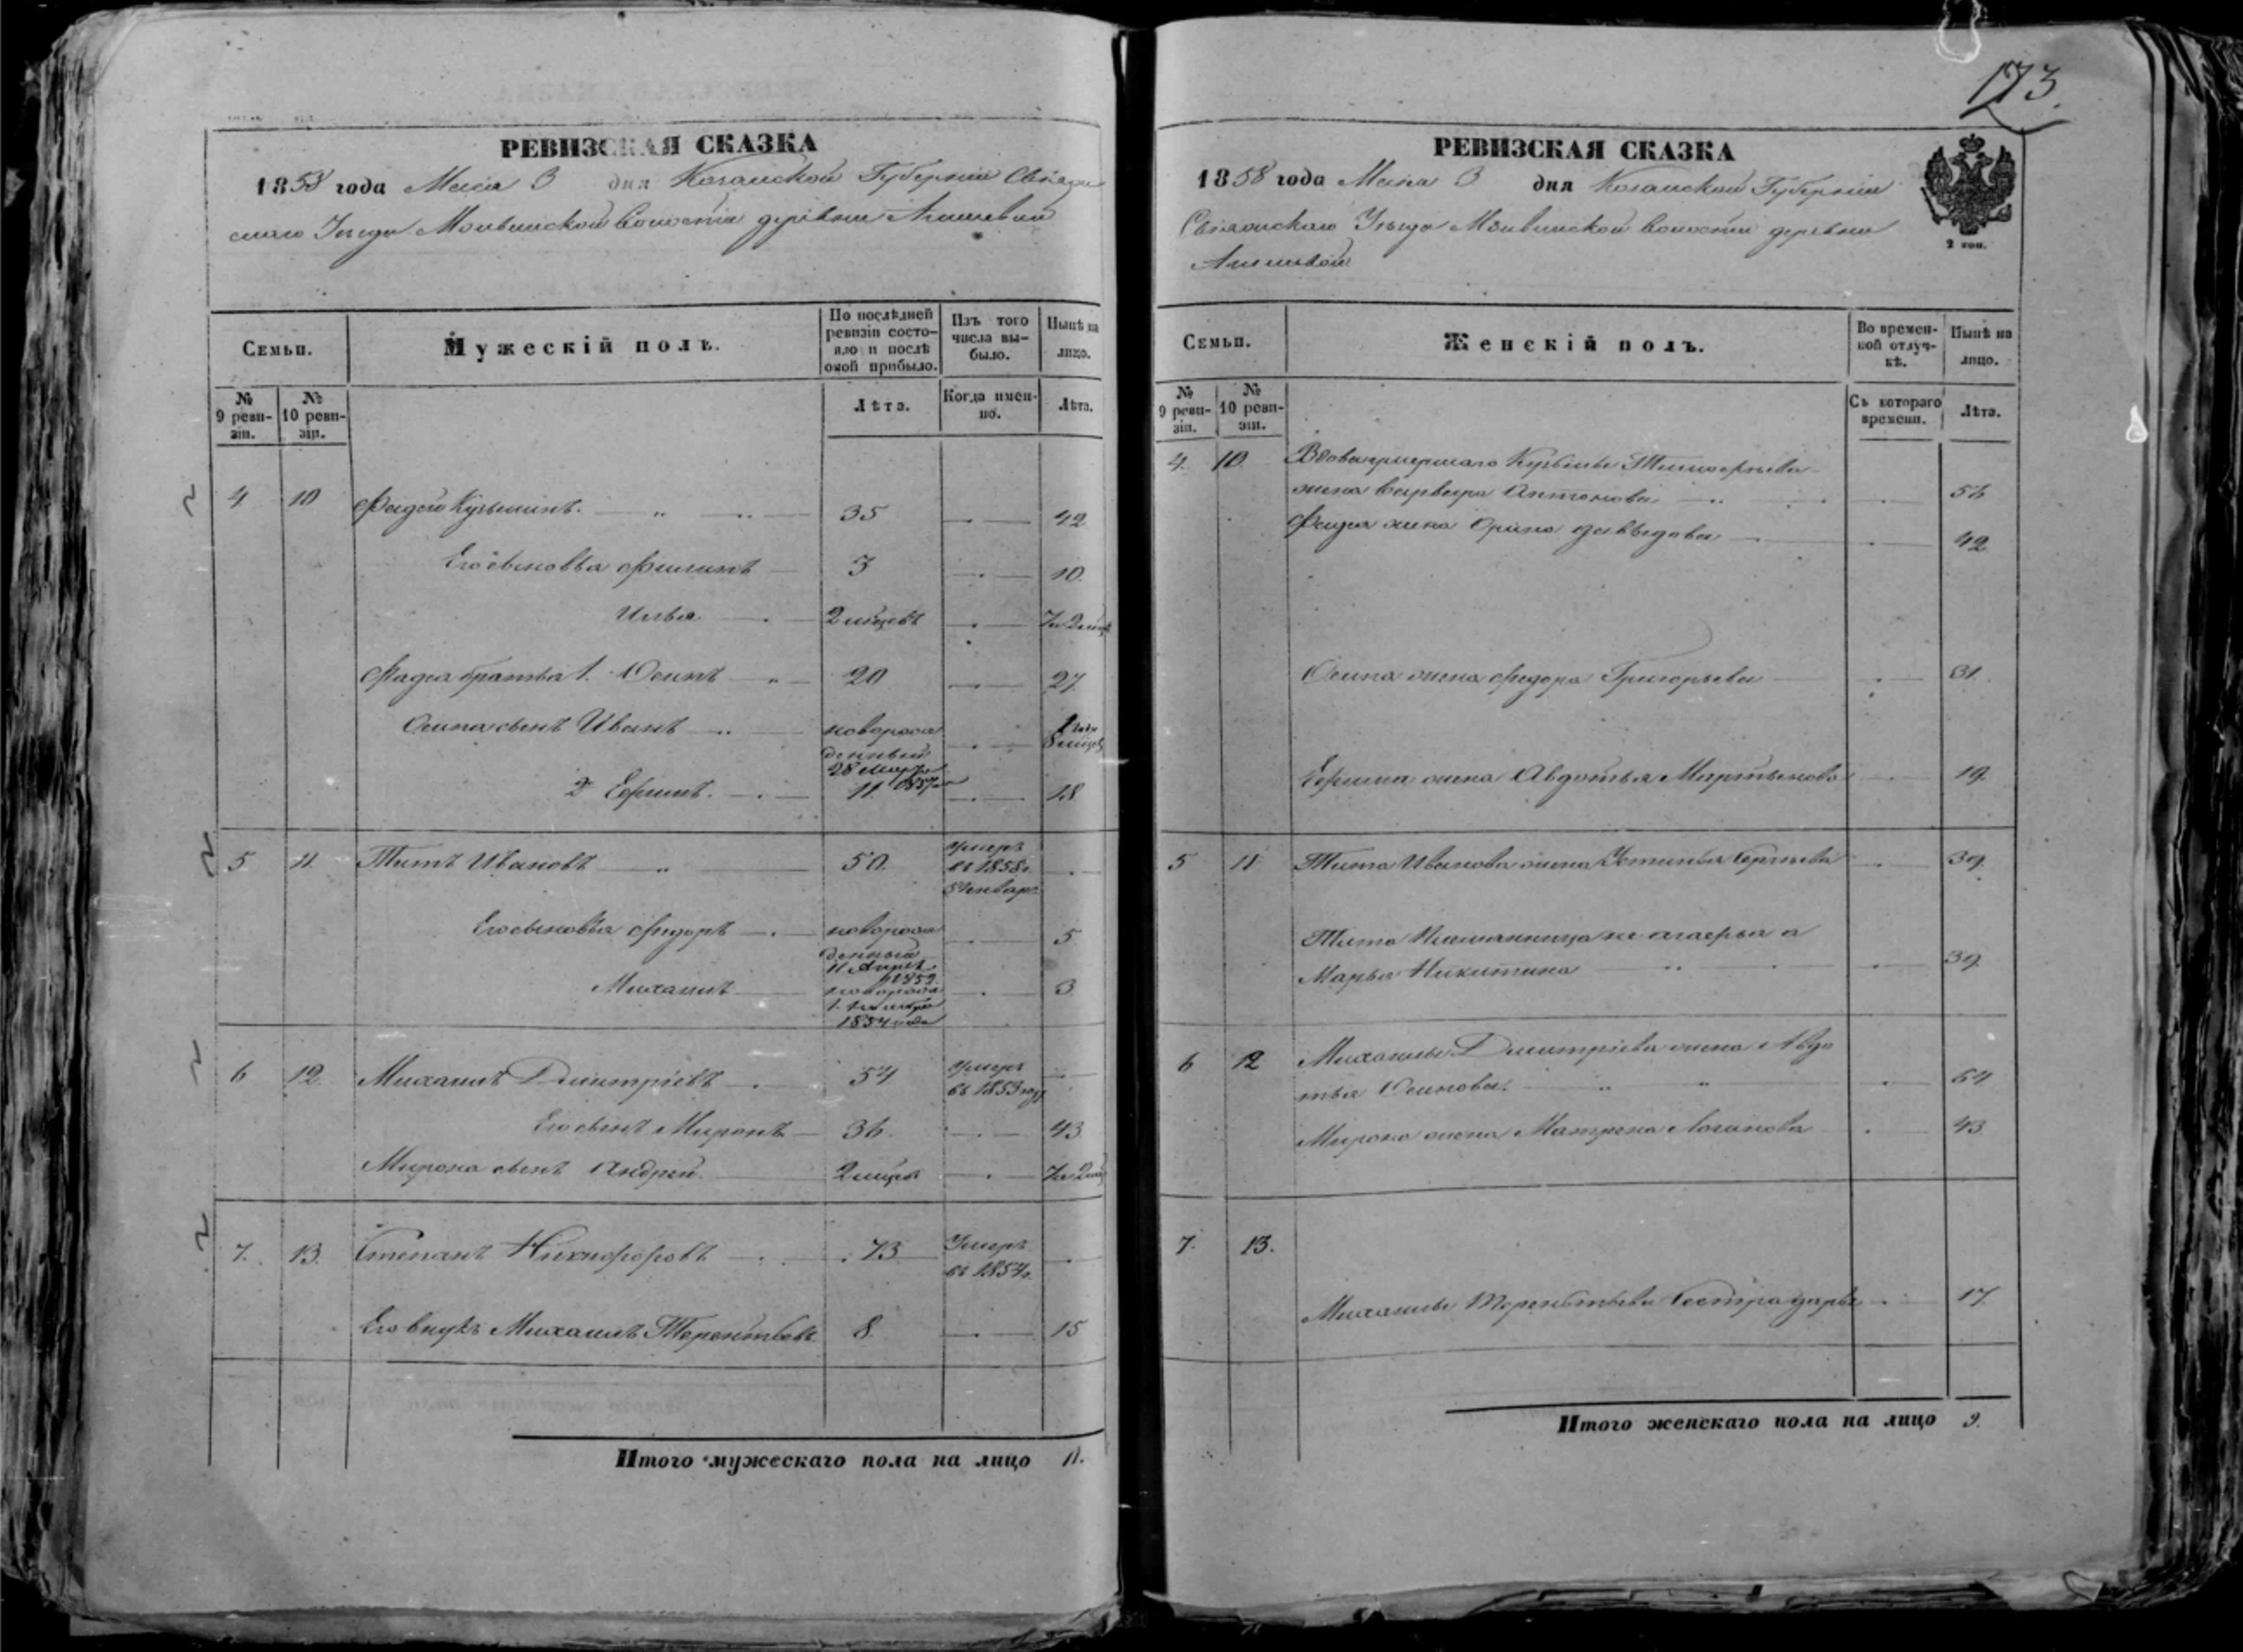 РЕВИЗСКАЯ СКАЗКА
1858 года Мaiя 3 дня Казанской Губернiи Свiяж
скаго Уезда волости деревни
Семьи.
Мужескій полъ.
По послѣдней ревизіи состояло и послѣ оной прибыло.
Изъ того числа выбыло.
Нынѣ на лицо.
№ 9 ревизіи.
№ 10 ревизіи.
Лѣта.
Когда именно.
Лѣта.
4 10 Фадей Кузьминъ. 35 42
Его сыновья Филипъ 3 10
Илья 2 мѣсцевъ 7 л 2
Фадея братья 1. Осипъ 20 27
Осипа сынъ Иванъ новорож
денный
28 Марта 1857
2 Ефимъ. 11 18
5 11 Титъ Ивановъ 50 Умеръ
въ 1858г.
5 Январ
Его сыновья Федоръ новорож 5
денный
11 Апрѣл
1852
Михаилъ новорож 3
1854 года
6 12 Михаилъ Дмитріевъ 54 Умеръ
въ 1853 году
Его сынъ Миронъ 36 43
Мирона сынъ Андрей 2 мѣсца 7 л 2
7. 13. Степанъ Никифоровъ 73 Умеръ
въ 1854г.
Его внукъ Михаилъ Терентьевъ 8 15
Итого мужескаго пола на лицо 11.
173.
РЕВИЗСКАЯ СКАЗКА
1858 года Маiя 3 дня Казанской Губернiи
Свiяжскаго Уезда волости деревни
2 коп.
Семьи.
Женскій полъ.
Во временной отлучкѣ.
Нынѣ на лицо.
№ 9 ревизіи.
№ 10 ревизіи.
Съ котораго времени.
Лѣта.
4. 10. Вдова умершаго Кузьмы Тимофѣева
жена Варвара Антонова 56
Фадея жена Орина Давыдова 42
Осипа жена Федора Григорьева 31
Ефима жена Авдотья Мартынова 19
5 11 Тита Иванова жена Устинья Сергѣева 39
Тита
Марья Никитина 39
6 12 Михаилы Дмитріева жена Авдо
тья Осипова. 64
Мирона жена Матрена Логинова 43
7. 13.
Михаилы Терентьева сестра Дарья 17
Итого женскаго пола на лицо 9.